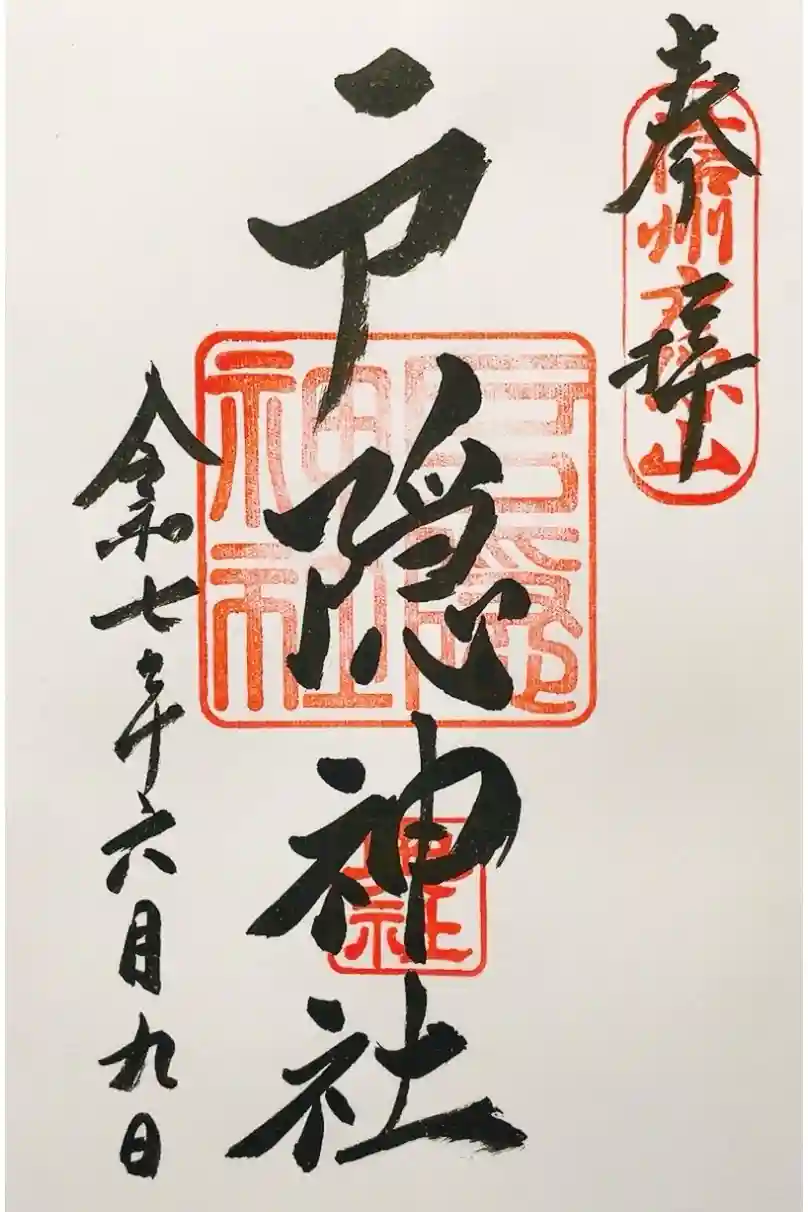 奉拝
信州戸隠山
戸隠神社
戸隠神社
令和七年六月九日